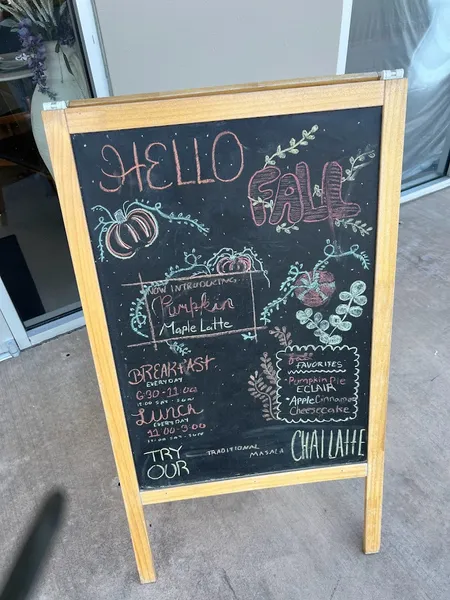 HELLO
FALL
NOW INTRODUCING
Pumpkin
Maple Latte
BREAKFAST
EVERYDAY
6:30-11:00
LUNCH
EVERYDAY
11:00-3:00
Fall
FAVORITES
•Pumpkin Pie
ECLAIR
•Apple Cinnamon
Cheesecake
TRY
OUR
TRADITIONAL
MASALA
CHAI LATTE